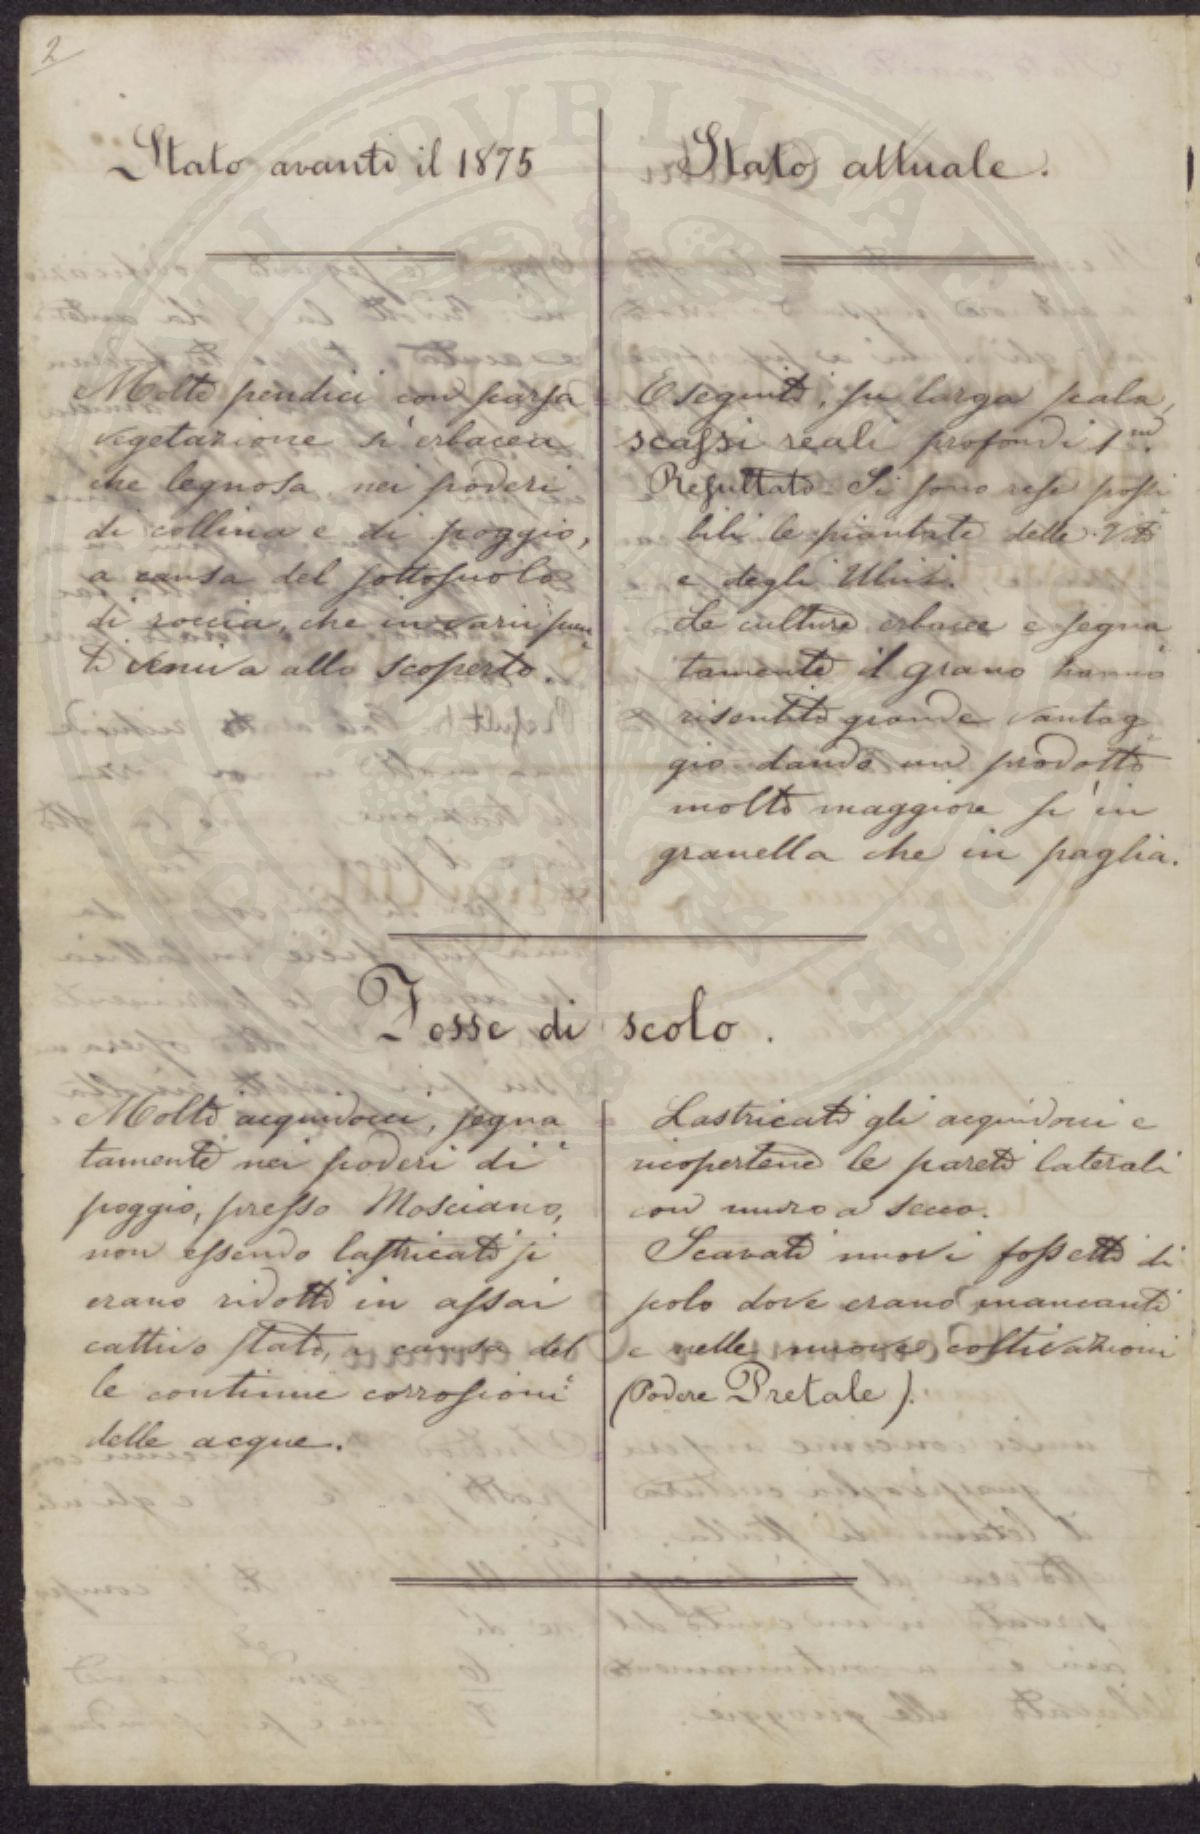 2
Stato avanti il 1875
Molte pendici con scarsa
vegetazione sì erbacea
che legnosa, nei poderi
di collina e di poggio,
a causa del sottosuolo
di roccia, che in varii pun
ti veniva allo scoperto.
Stato attuale.
Eseguiti, su larga scala,
scassi reali profondi 1m.
Resultato - Si sono rese possi
bili le piantate delle Viti
e degli Ulivi.
Le culture erbacee e segna
tamente il grano hanno
risentito grande vantag
gio dando un prodotto
molto maggiore sì in
granella che in paglia.
Fosse di scolo.
Molti acquidocci, segna
tamente nei poderi di
poggio, presso Mosciano,
non essendo lastricati si
erano ridotti in assai
cattivo stato, a causa del
le continue corrosioni
delle acque.
Lastricati gli acquidocci e
ricopertene le pareti laterali
con muro a secco.
Scavati nuovi fossetti di
scolo dove erano mancanti
e nelle nuove coltivazioni
(Podere Pretale).